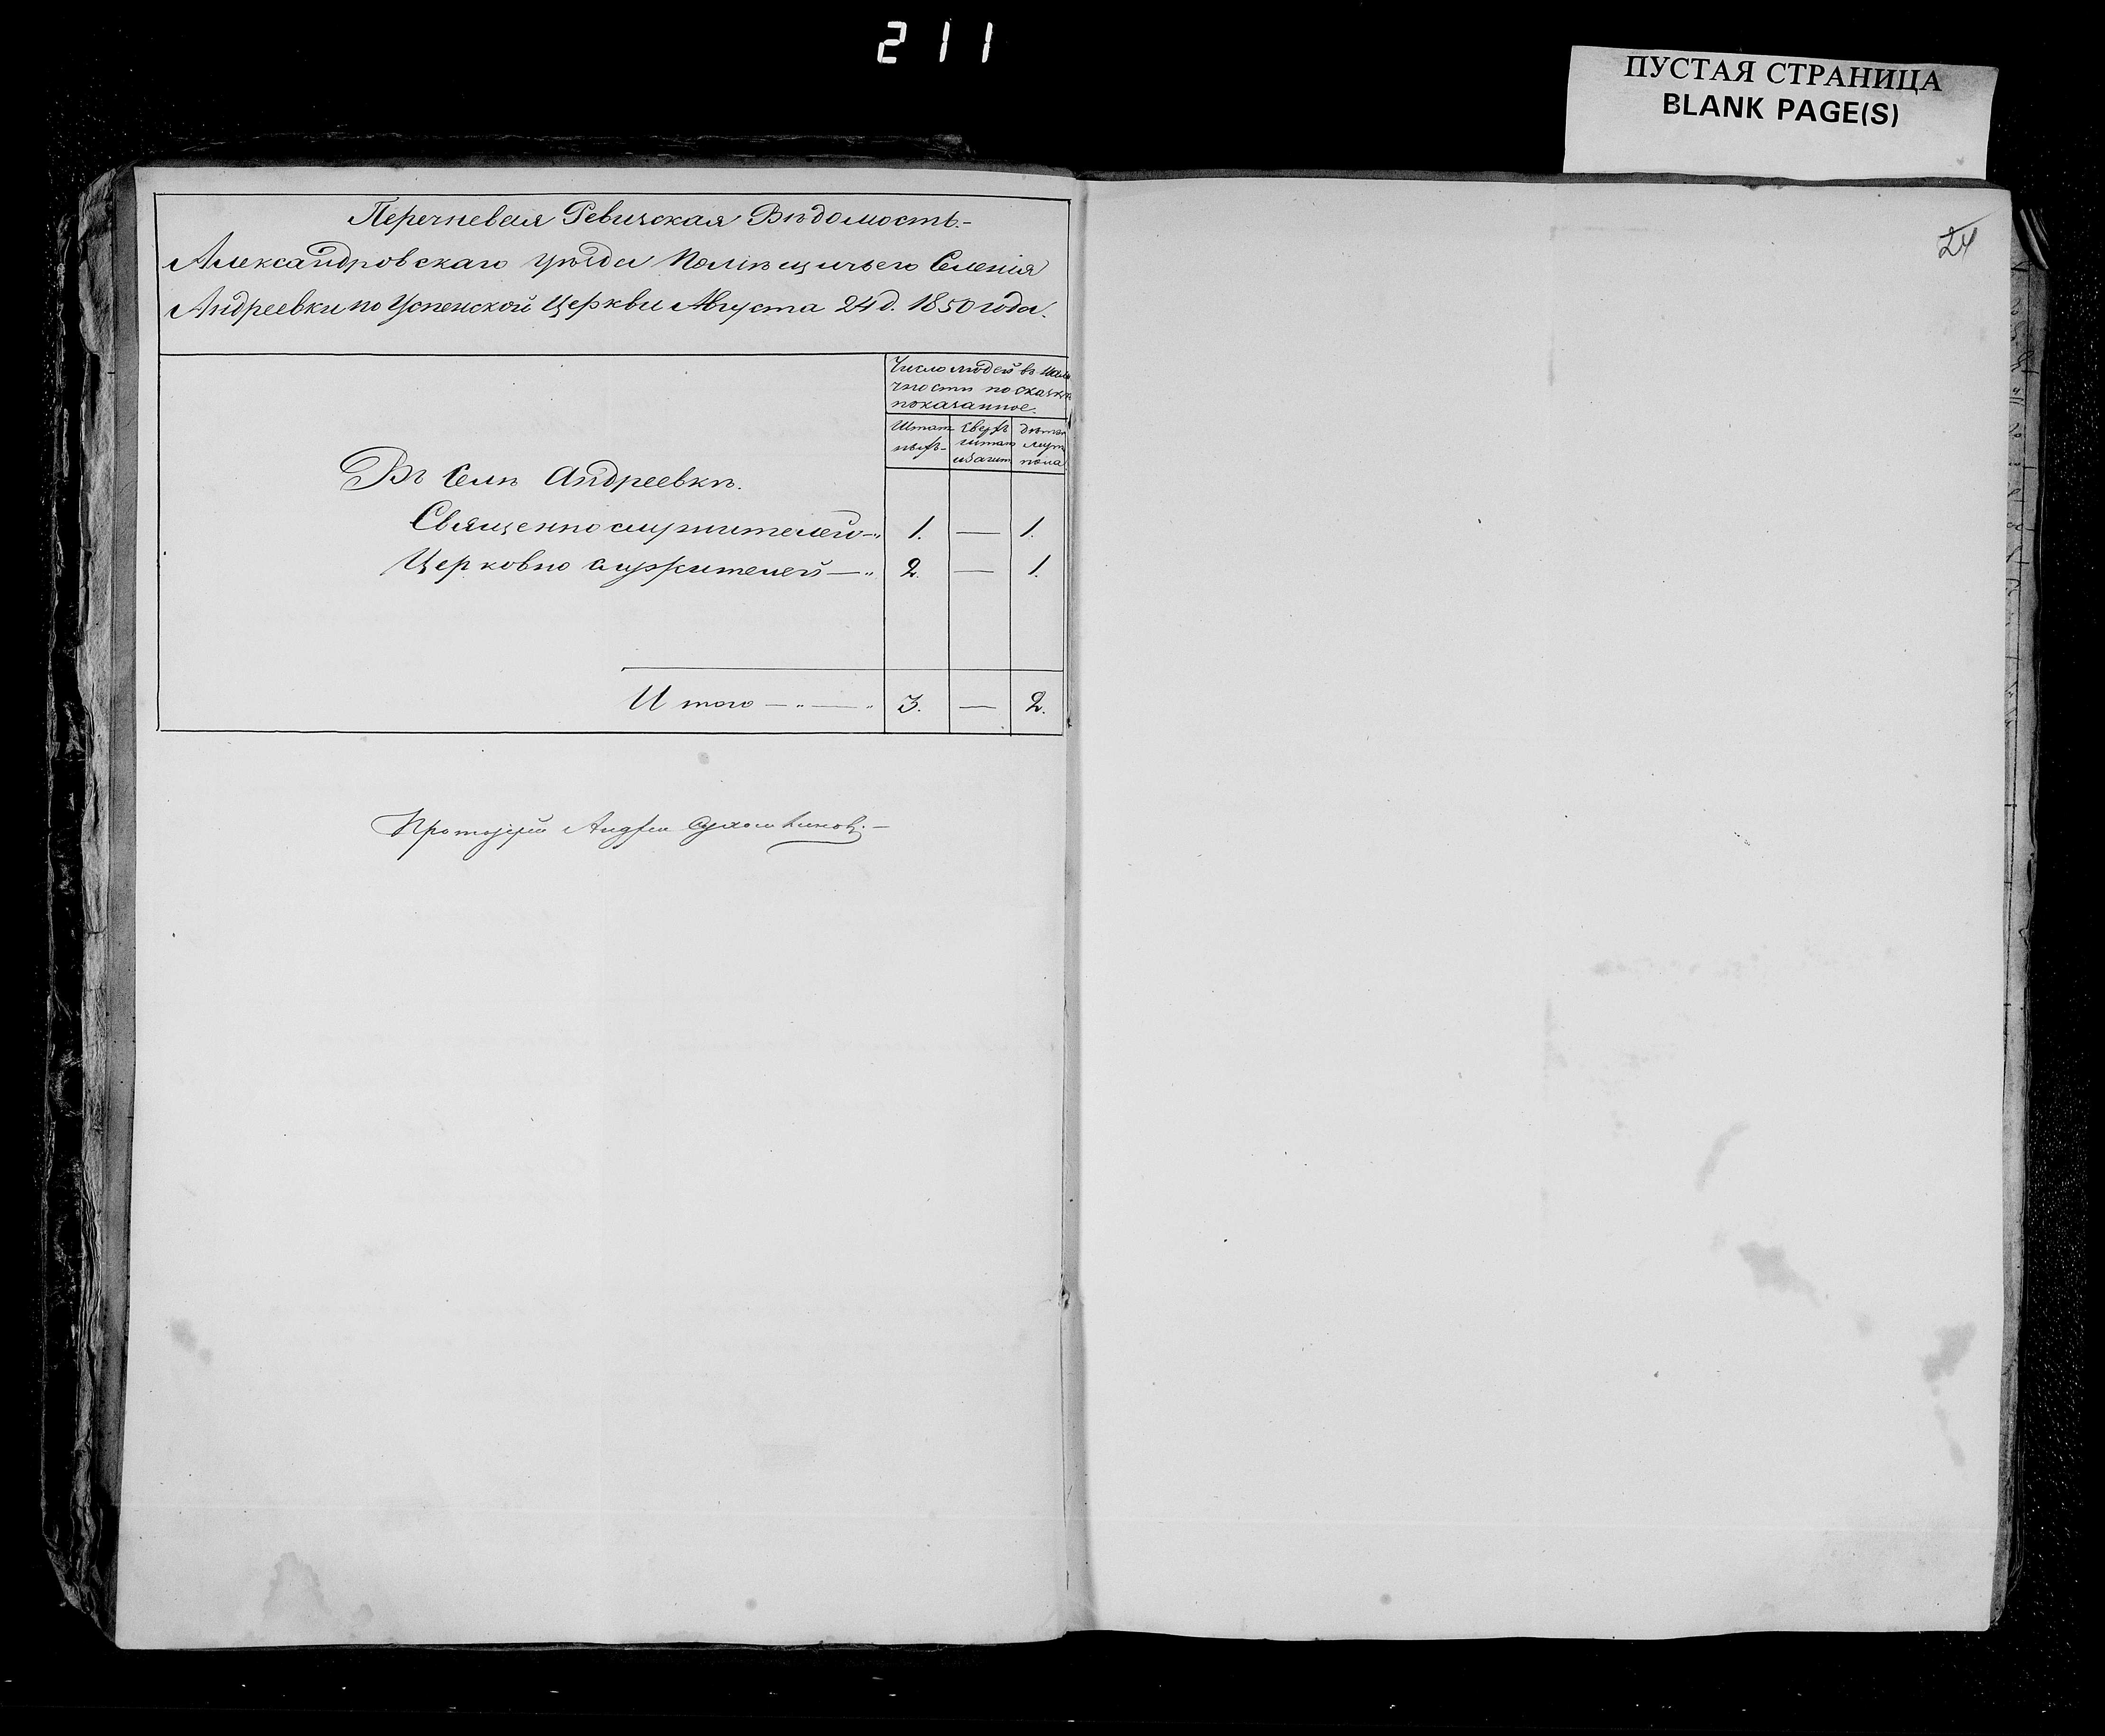 211
ПУСТАЯ СТРАНИЦА
BLANK PAGE(S)
24
Перечневая Ревизская Вѣдомость.
Александровскаго уѣзда Помѣщичьего Селенія
Андреевки по Успенской Церкви Августа 24 д. 1850 года.
Число людей въ нали
чности по сказкѣ
показанное.
Штат Сверхъ Дѣтей
ныхъ штата муж
пола
Въ Селѣ Андреевкѣ.
Священнослужителей — 1. — 1.
Церковно служителей — 2. — 1.
Итого — 3. — 2.
Протоіерей Андрей